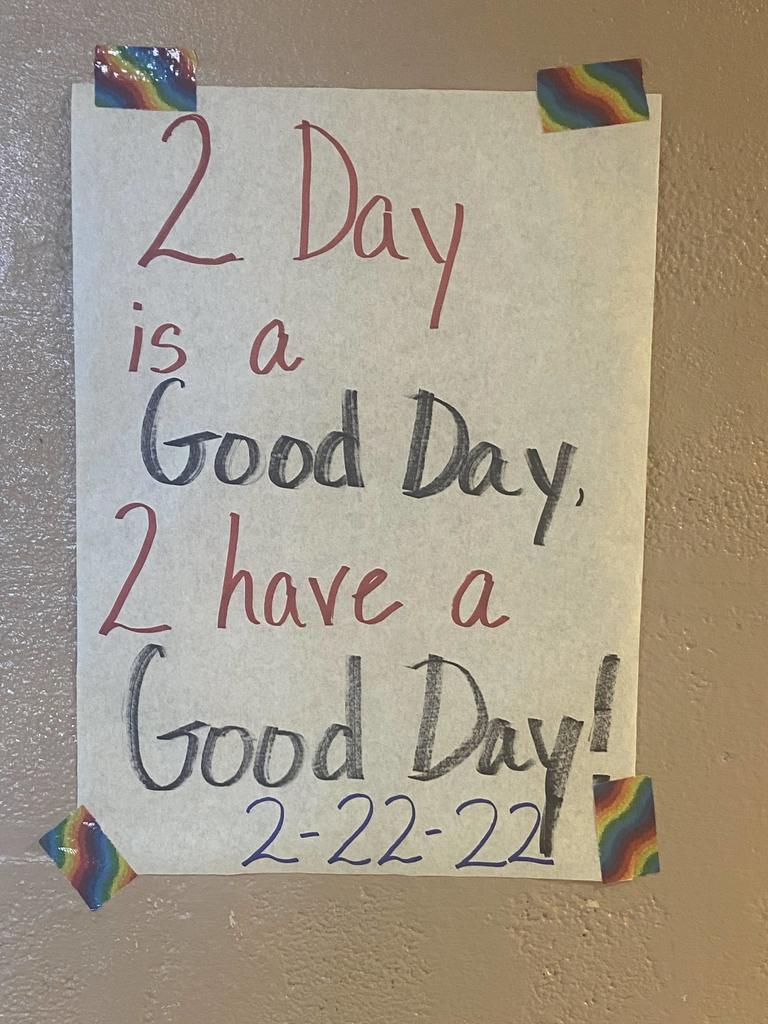 2 Day
is a
Good Day,
2 have a
Good Day!
2-22-22